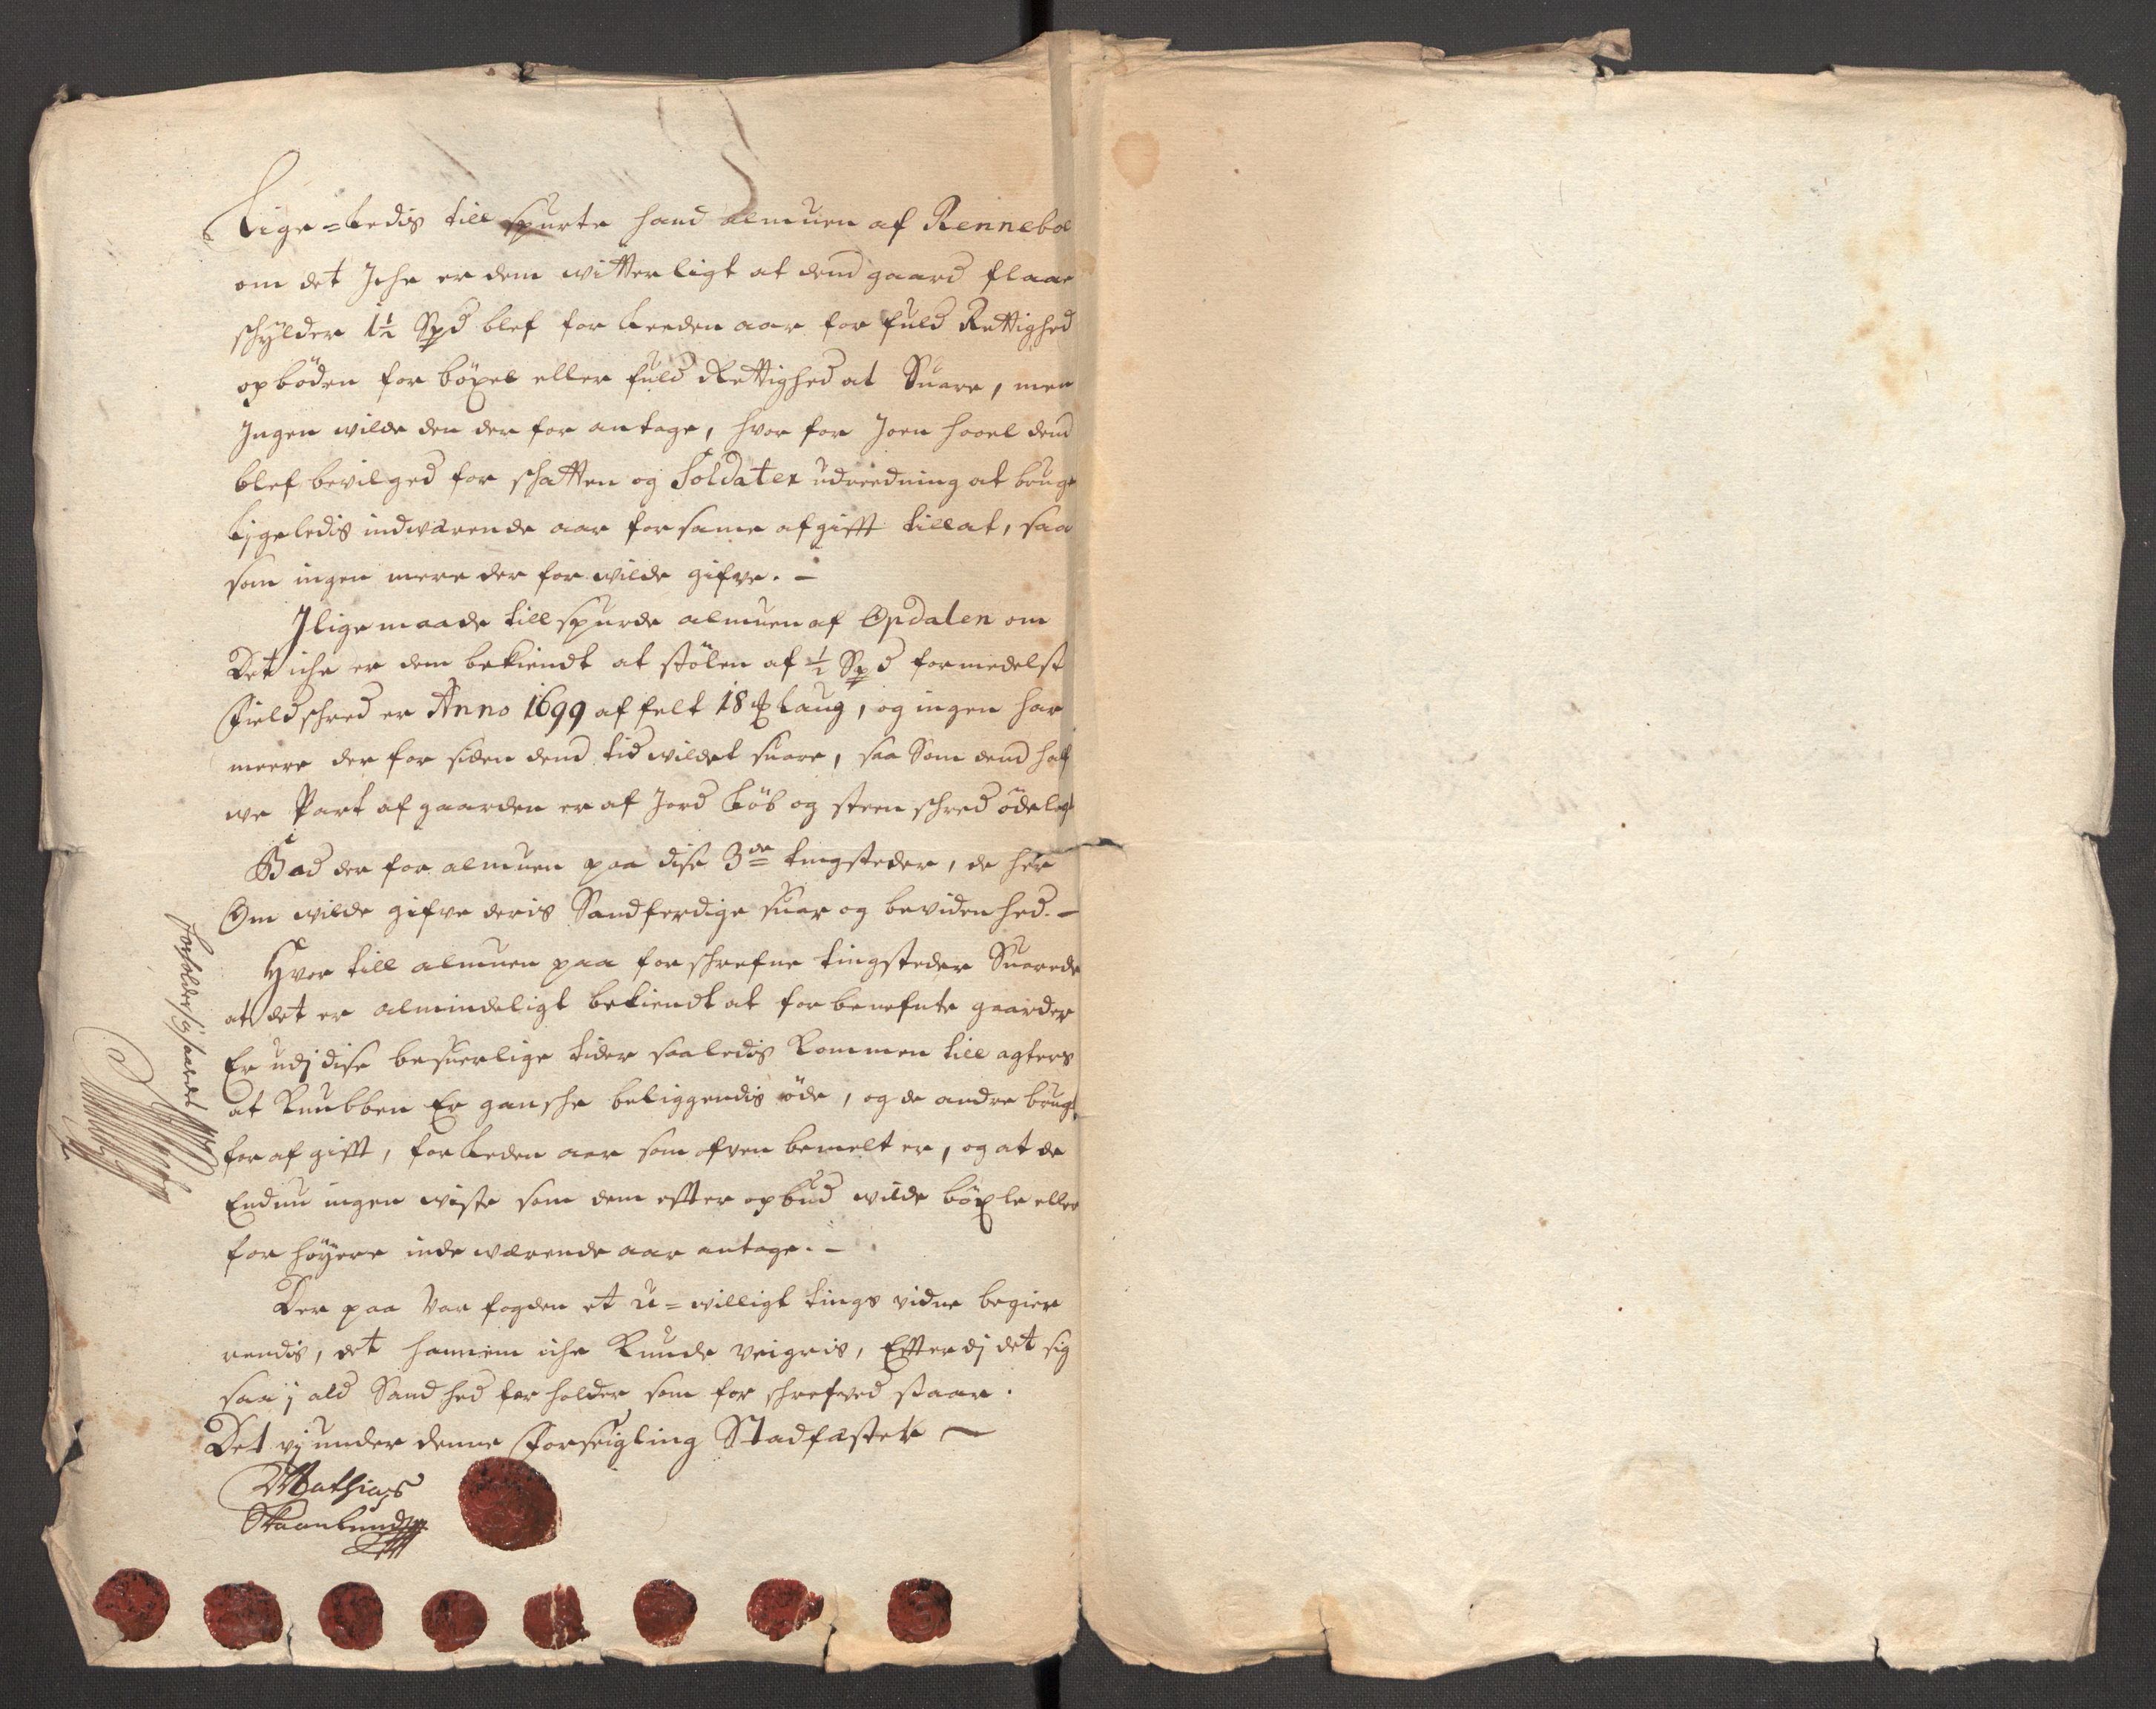 Lige-ledis till spurte hand almuen af Renneboe
om det Iche er dem witterligt at dend gaard flaae
schylder 1½ Spd blef for leeden aar for fuld Rettighed
opböden for böxel eller fuld Rettighed at Suare, men
Ingen wilde den der for antage, hvor for Joen hooel dend
blef bevilged for schatten og Soldater udreedning at bruge
Ligeledis indwærende aar for same afgifft tillat, saa
som ingen mere der for wilde gifve. -
Ilige maade till spurde almuen af Opdalen om
Det iche er dem bekiendt at stölen af ½ Spd formedelst
Fieldschred er Anno 1699 affelt 18 laug, og ingen har
meere der for siden dend tid wildet suare, saa Som dend half
we Part af gaarden er af Jord löb og steen schred ödelagt
Bad der for almuen paa dise 3de tingsteder, de her
Om wilde gifve deris Sandferdige suar og bevidenhed. -
Hvor till almuen paa forschrefne tingsteder Suarede
at det er almindeligt bekiendt at for benefnte gaarder
Er udj dise besuerlige tider saaledis kommen till agters
at Knubben Er gansche beliggendis öde, og de andre brugt
for afgifft, forleden aar som ofven bemelt er, og at de
Endnu ingen wiste som dem effter opbud wilde böxle eller
for höyere inde wærende aar antage. -
Der paa var fogden et u-willigt tings vidne begier
rendis, det hannem iche kunde veigris, Efterdj det sig
saa j ald Sandhed forholder som for schrefved staar.
Det vj under denne Forseigling Stadfæster
Mathias
Skaanlund
forholder sig saaledes